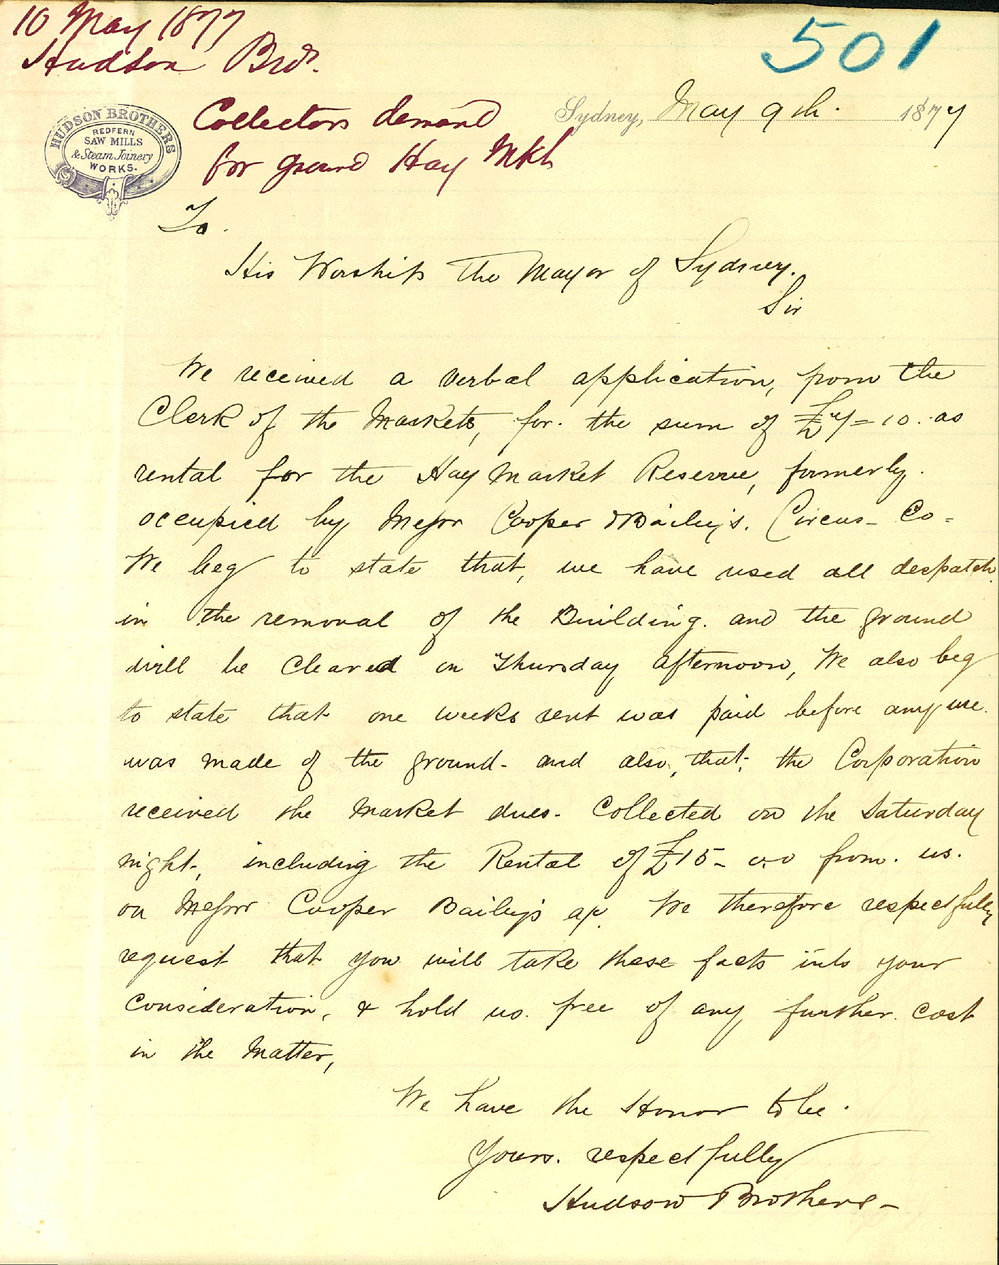 10 May 1877
Hudson Bros.
501
Collectors demand
for ground Hay Mkt
HUDSON BROTHERS
REDFERN
SAW MILLS
& Steam Joinery
WORKS.
Sydney, May 9th. 1877
To.
His Worship the Mayor of Sydney.
Sir
We received a verbal application, from the
Clerk of the Markets, for. the sum of £7=10. as
rental for the Hay Market Reserve, formerly.
occupied by Messrs Cooper & Bailey's. Circus - Co=
We beg to state that, we have used all despatch.
in the removal of the Building. and the ground
will be cleared on Thursday afternoon, We also beg
to state that one weeks rent was paid before any use.
was made of the ground - and also, that, the Corporation
received the Market dues. Collected on the Saturday
night, including the Rental of £15-0.0 from. us.
on Messrs Cooper Bailey's a/c. We therefore respectfully
request that you will take these facts into your
consideration, & hold us. free of any further. cost
in the Matter,
We have the Honor to be.
Yours. respectfully
Hudson Brothers -